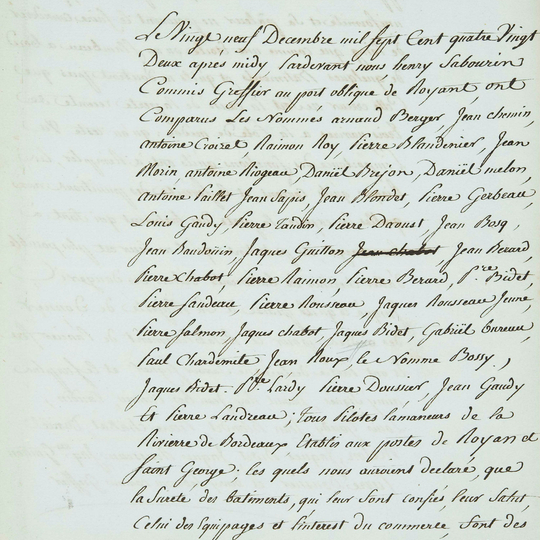 Le Vingt neuf Decembre mil sept Cent quatre Vingt
Deux après midy Pardevant nous henry Sabourin
Commis Greffier au port oblique de Royant ont
Comparus Les Nommés arnaud Berger, Jean chemin,
antoine Croizet, Raimon Roy, Pierre Blaudenier, Jean
Morin, antoine Riogeau, Daniël Brejon, Daniël melon,
antoine Paillet, Jean Sapis, Jean Blondet, Pierre Gerbeau,
Louis Gaudy, Pierre Tandin, Pierre Daoust, Jean Bosq,
Jean Baudoüin, Jaques Guitton, Jean Chabot, Jean Berard,
Pierre Chabot, Pierre Raimon, Pierre Berard, P.re Bidet,
Pierre Landeau, Pierre Rousseau, Jaques Rousseau Jeune,
Pierre Salmon, Jaques chabot, Jaques Bidet, Gabriël
Paul Chardemite, Jean Roux, le Nommé Bossy,
Jaques Bidet, P.re Lardy, Pierre Dousier, Jean Gaudy
Et Pierre Landreau; tous Pilotes lamaneurs de la
Riviere de Bordeaux Etablis aux postes de Royan et
Saint George; les quels nous auroient declaré, que
la Sureté des batiments, qui leur Sont confiés, leur Salut,
Celui des Equipages et l'interest du commerce, Sont des